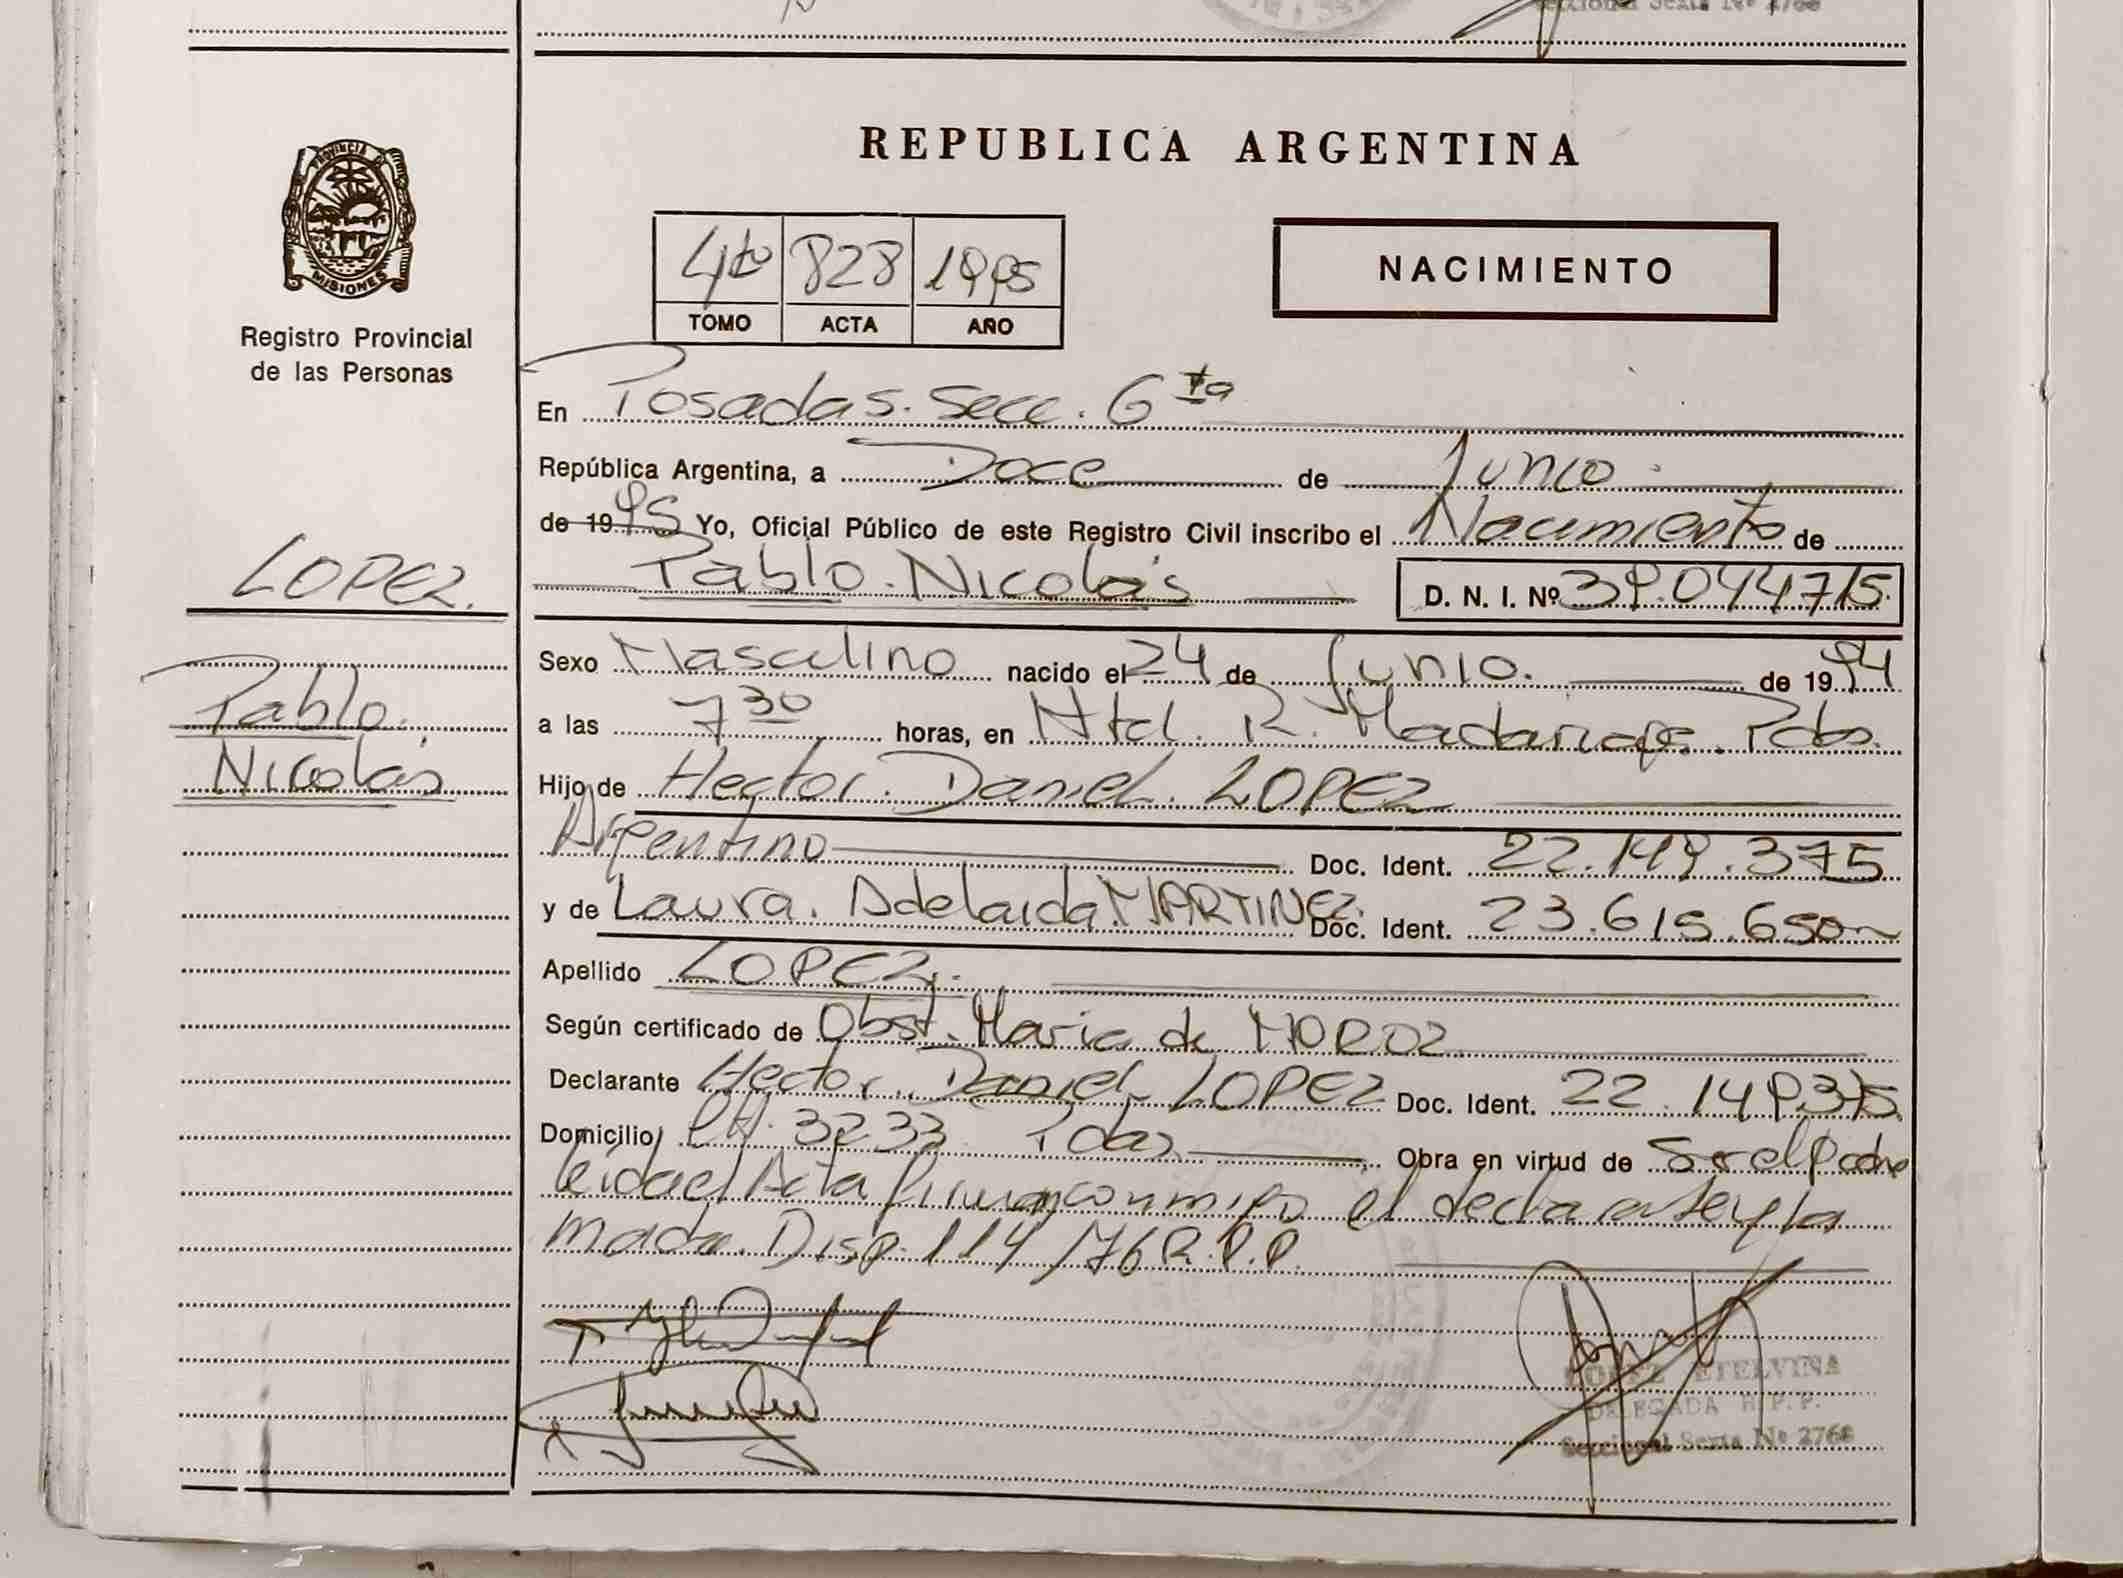 Seccional Sexta Nº 2768
PROVINCIA DE
MISIONES
Registro Provincial
de las Personas
LOPEZ.
Pablo
Nicolás
REPUBLICA ARGENTINA
4to 828 1995
TOMO ACTA AÑO
NACIMIENTO
En Posadas. Secc. 6ta
República Argentina, a Doce de Junio.
de 1995 Yo, Oficial Público de este Registro Civil inscribo el Nacimiento de
Pablo. Nicolás D. N. I. Nº 39.044715.
Sexo Masculino nacido el 24 de Junio. de 1994
a las 7 30 horas, en Ntd. R. Madariaga. Pdas.
Hijo de Hector. Daniel. LOPEZ
Argentino Doc. Ident. 22.149.375
y de Laura. Adelaida. MARTINEZ. Doc. Ident. 23.615.650
Apellido LOPEZ.
Según certificado de Obst. Maria de MOROZ
Declarante Hector. Daniel LOPEZ Doc. Ident. 22.149375
Domicilio CH. 3233 Pdas. Obra en virtud de Ser el Padre
leida el Acta firman conmigo el declarante y la
madre. Disp. 114/76 R.P.P.
LOPEZ ETELVINA
DELEGADA R.P.P.
Seccional Sexta Nº 2768